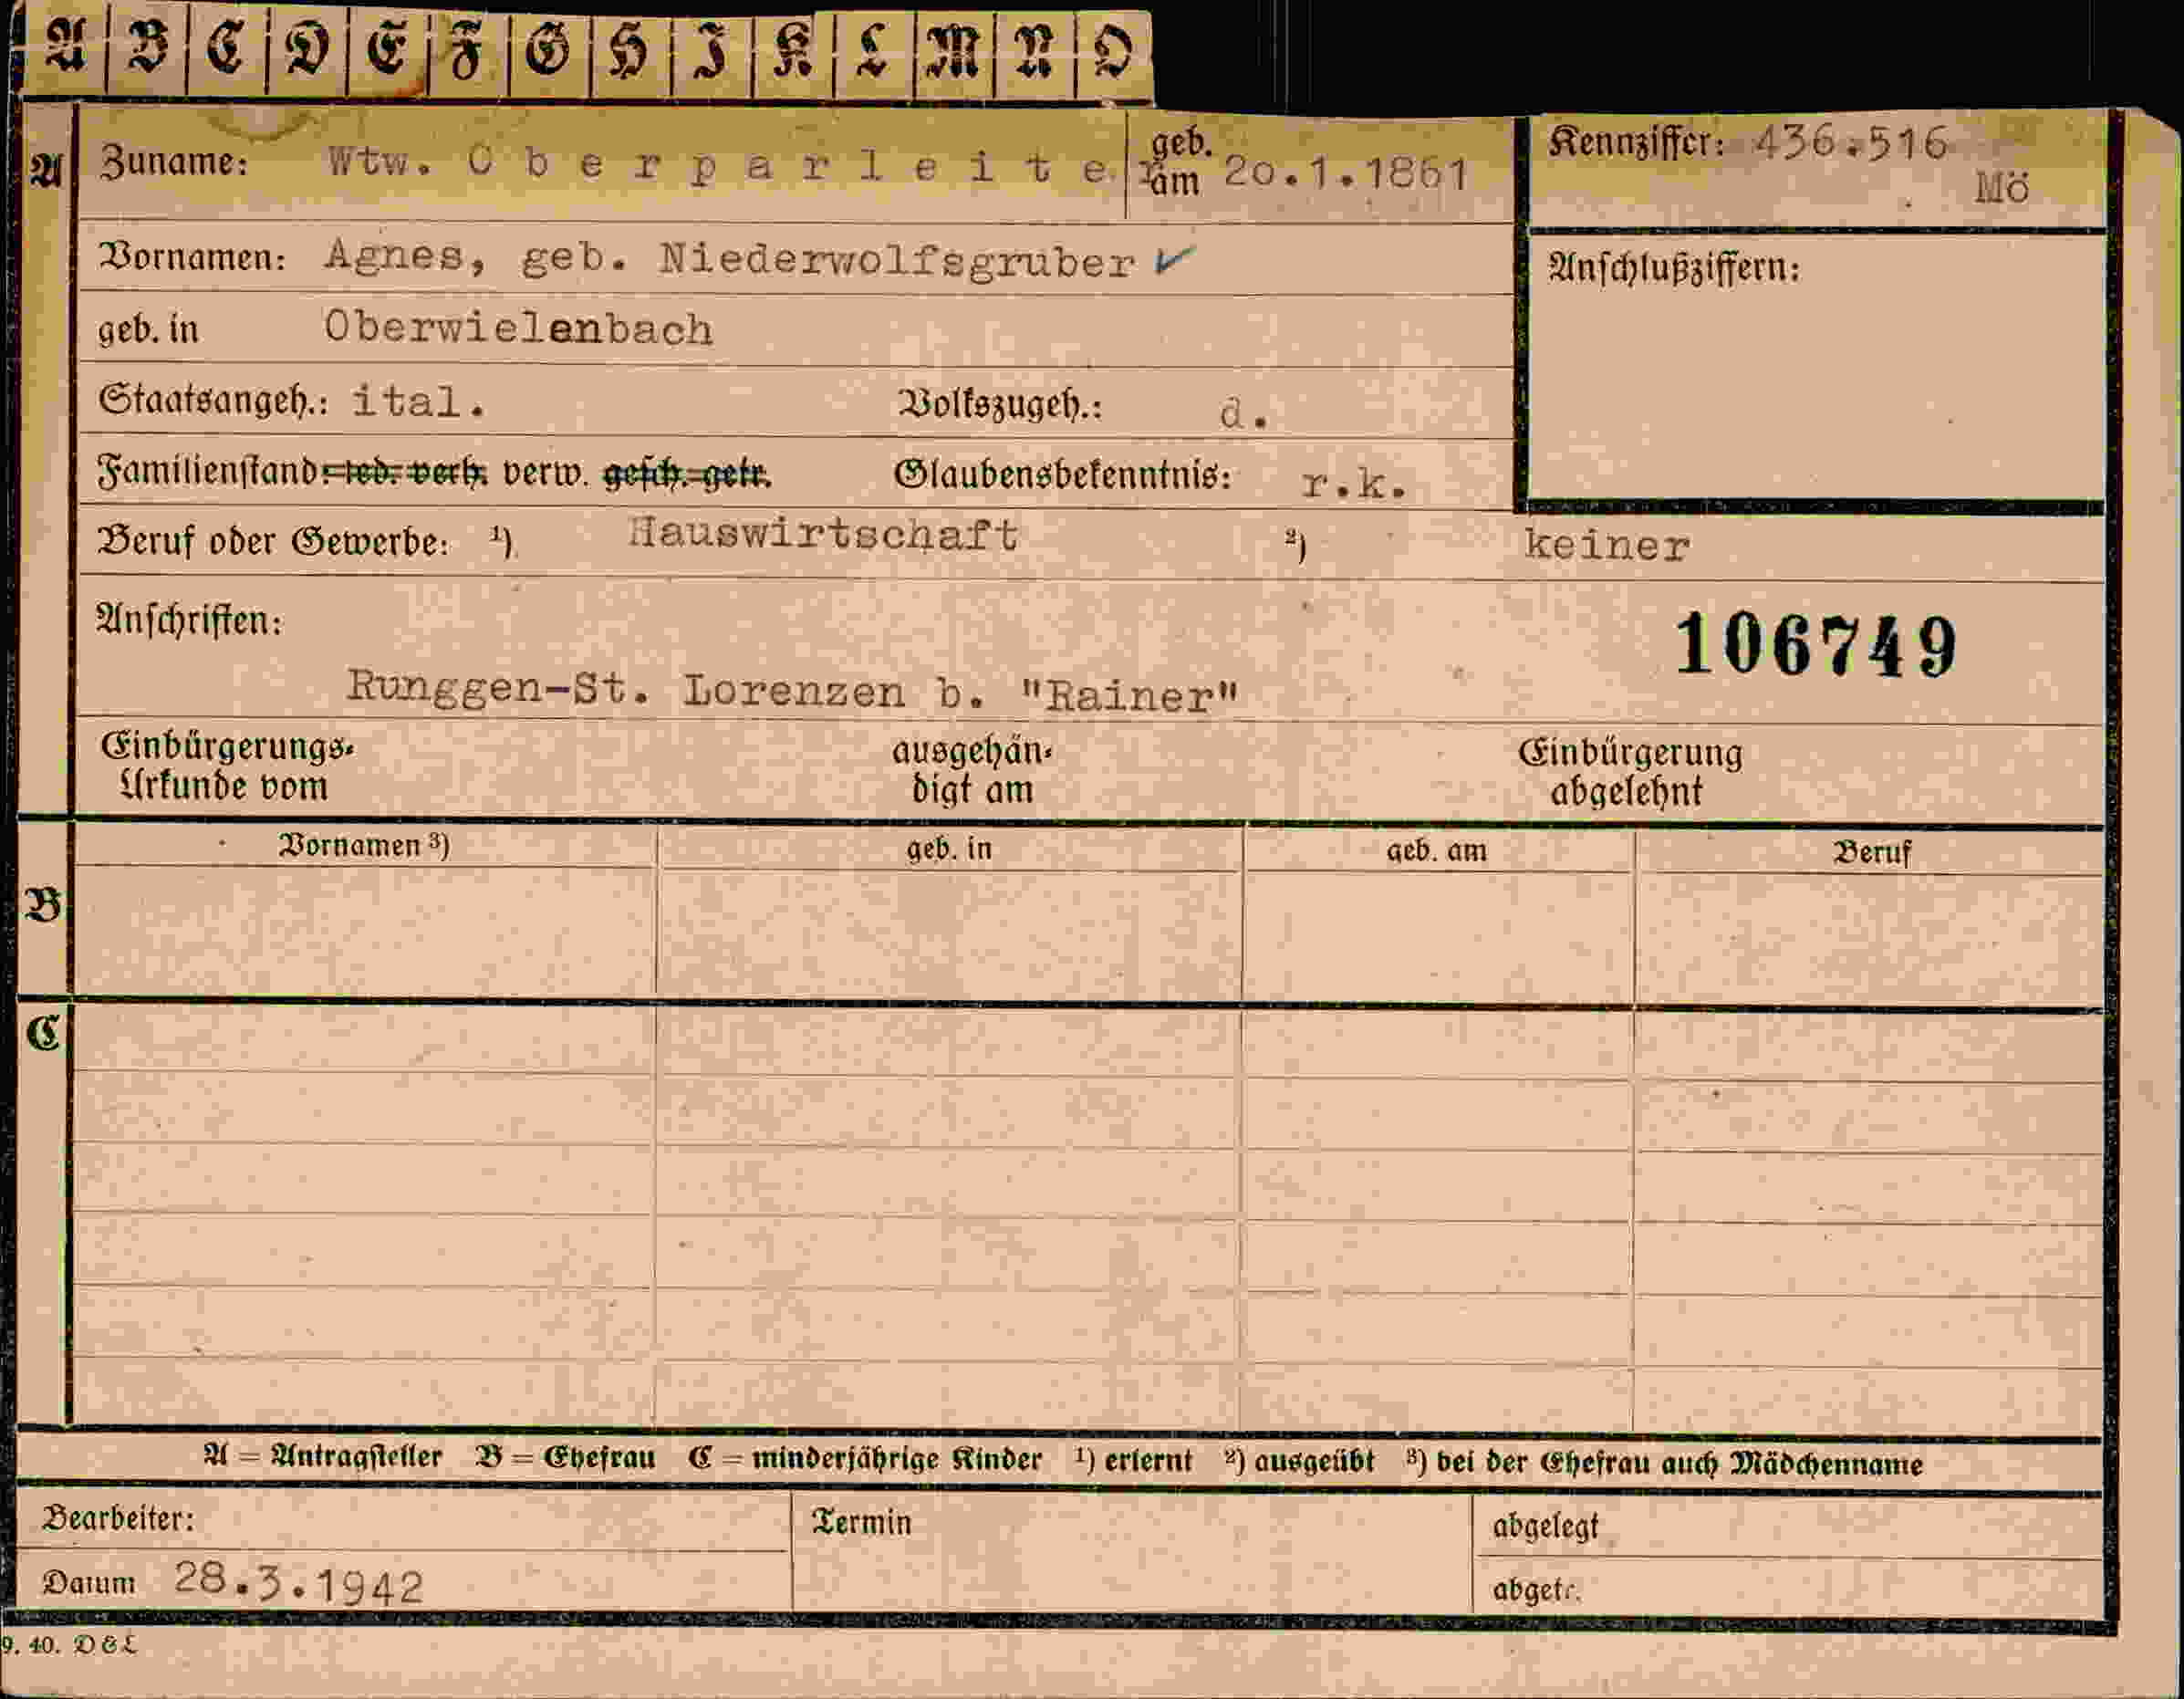 A B C D E F G H I K L M N O
A Zuname: Wtw. O b e r p a r l e i t e r geb. am 20.1.1861 Kennziffer: 436.516
Mö
Vornamen: Agnes, geb. Niederwolfsgruber ✓ Anschlußziffern:
geb. in Oberwielenbach
Staatsangeh.: ital. Volkszugeh.: d.
Familienstand: led. verh. verw. gesch. getr. Glaubensbekenntnis: r.k.
Beruf oder Gewerbe: ¹) Hauswirtschaft ²) keiner
Anschriften: 106749
Runggen-St. Lorenzen b. "Rainer"
Einbürgerungs- ausgehän- Einbürgerung
Urkunde vom digt am abgelehnt
Vornamen ³) geb. in geb. am Beruf
B
C
A = Antragsteller B = Ehefrau C = minderjährige Kinder ¹) erlernt ²) ausgeübt ³) bei der Ehefrau auch Mädchenname
Bearbeiter: Termin abgelegt
Datum 28.3.1942 abgetr.
9. 40. D & L